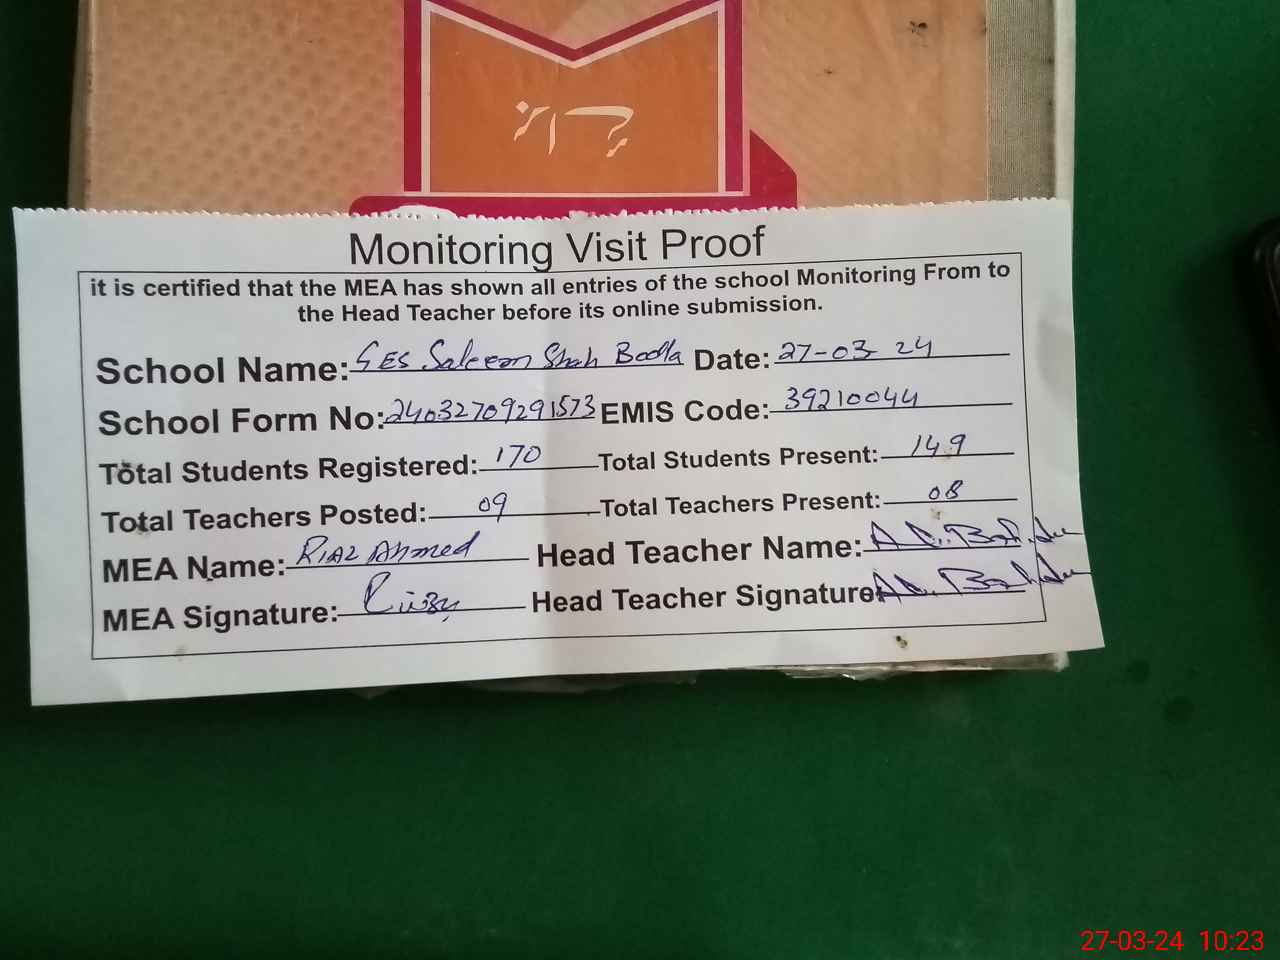 Monitoring Visit Proof
it is certified that the MEA has shown all entries of the school Monitoring From to
the Head Teacher before its online submission.
School Name: GES Saleem Shah Bodla Date: 27-03-24
School Form No: 24032709291573 EMIS Code: 39210044
Total Students Registered: 170 Total Students Present: 149
Total Teachers Posted: 09 Total Teachers Present: 08
MEA Name: Riaz Ahmed Head Teacher Name:
MEA Signature: Head Teacher Signature:
27-03-24 10:23